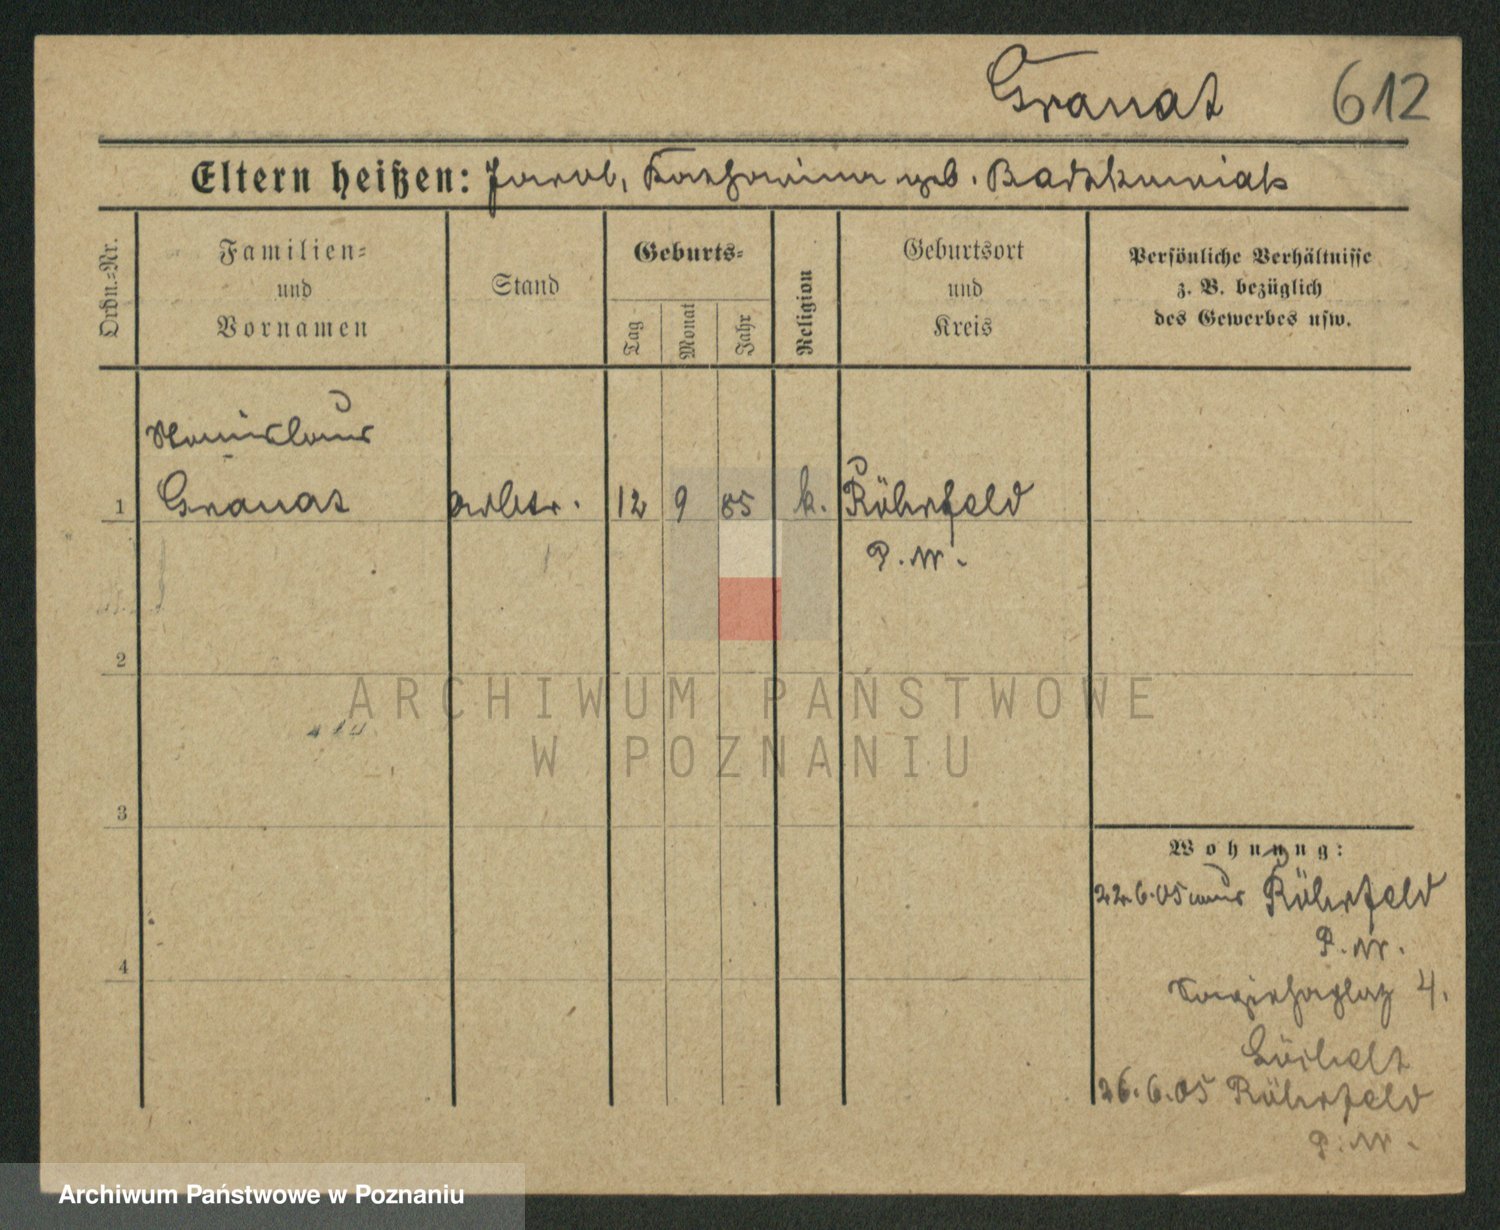 Granat 612
Eltern heißen: Jacob, Katharina geb. Badzkuniak
Ordn.-Nr.
Familien-
und
Vornamen
Stand
Geburts-
Tag
Monat
Jahr
Religion
Geburtsort
und
Kreis
Persönliche Verhältnisse
z. B. bezüglich
des Gewerbes usw.
Stanislaus
1 Granat Arbtr. 12 9 85 k. Röhrfeld
P. W.
2
ARCHIWUM PAŃSTWOWE
W POZNANIU
3
Wohnung:
22.6.05 aus Röhrfeld
P. W.
4
4.
26.6.05 Röhrfeld
P. W.
Archiwum Państwowe w Poznaniu